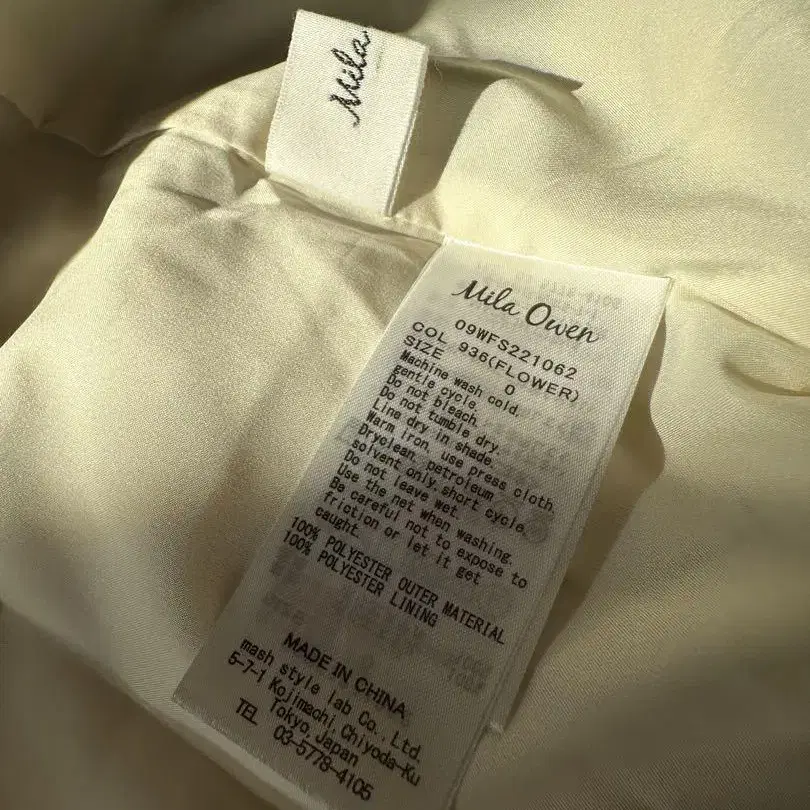 Mila
Mila Owen
09WFS221062
COL 936(FLOWER)
SIZE 0
Machine wash cold,
gentle cycle.
Do not bleach.
Do not tumble dry.
Line dry in shade.
Warm iron, use press cloth.
Dryclean, petroleum
solvent only,short cycle.
Do not leave wet.
Use the net when washing.
Be careful not to expose to
friction or let it get
caught.
100% POLYESTER OUTER MATERIAL
100% POLYESTER LINING
MADE IN CHINA
mash style lab Co.,Ltd.
5-7-1 Kojimachi,Chiyoda-Ku
Tokyo,Japan
TEL 03-5778-4105